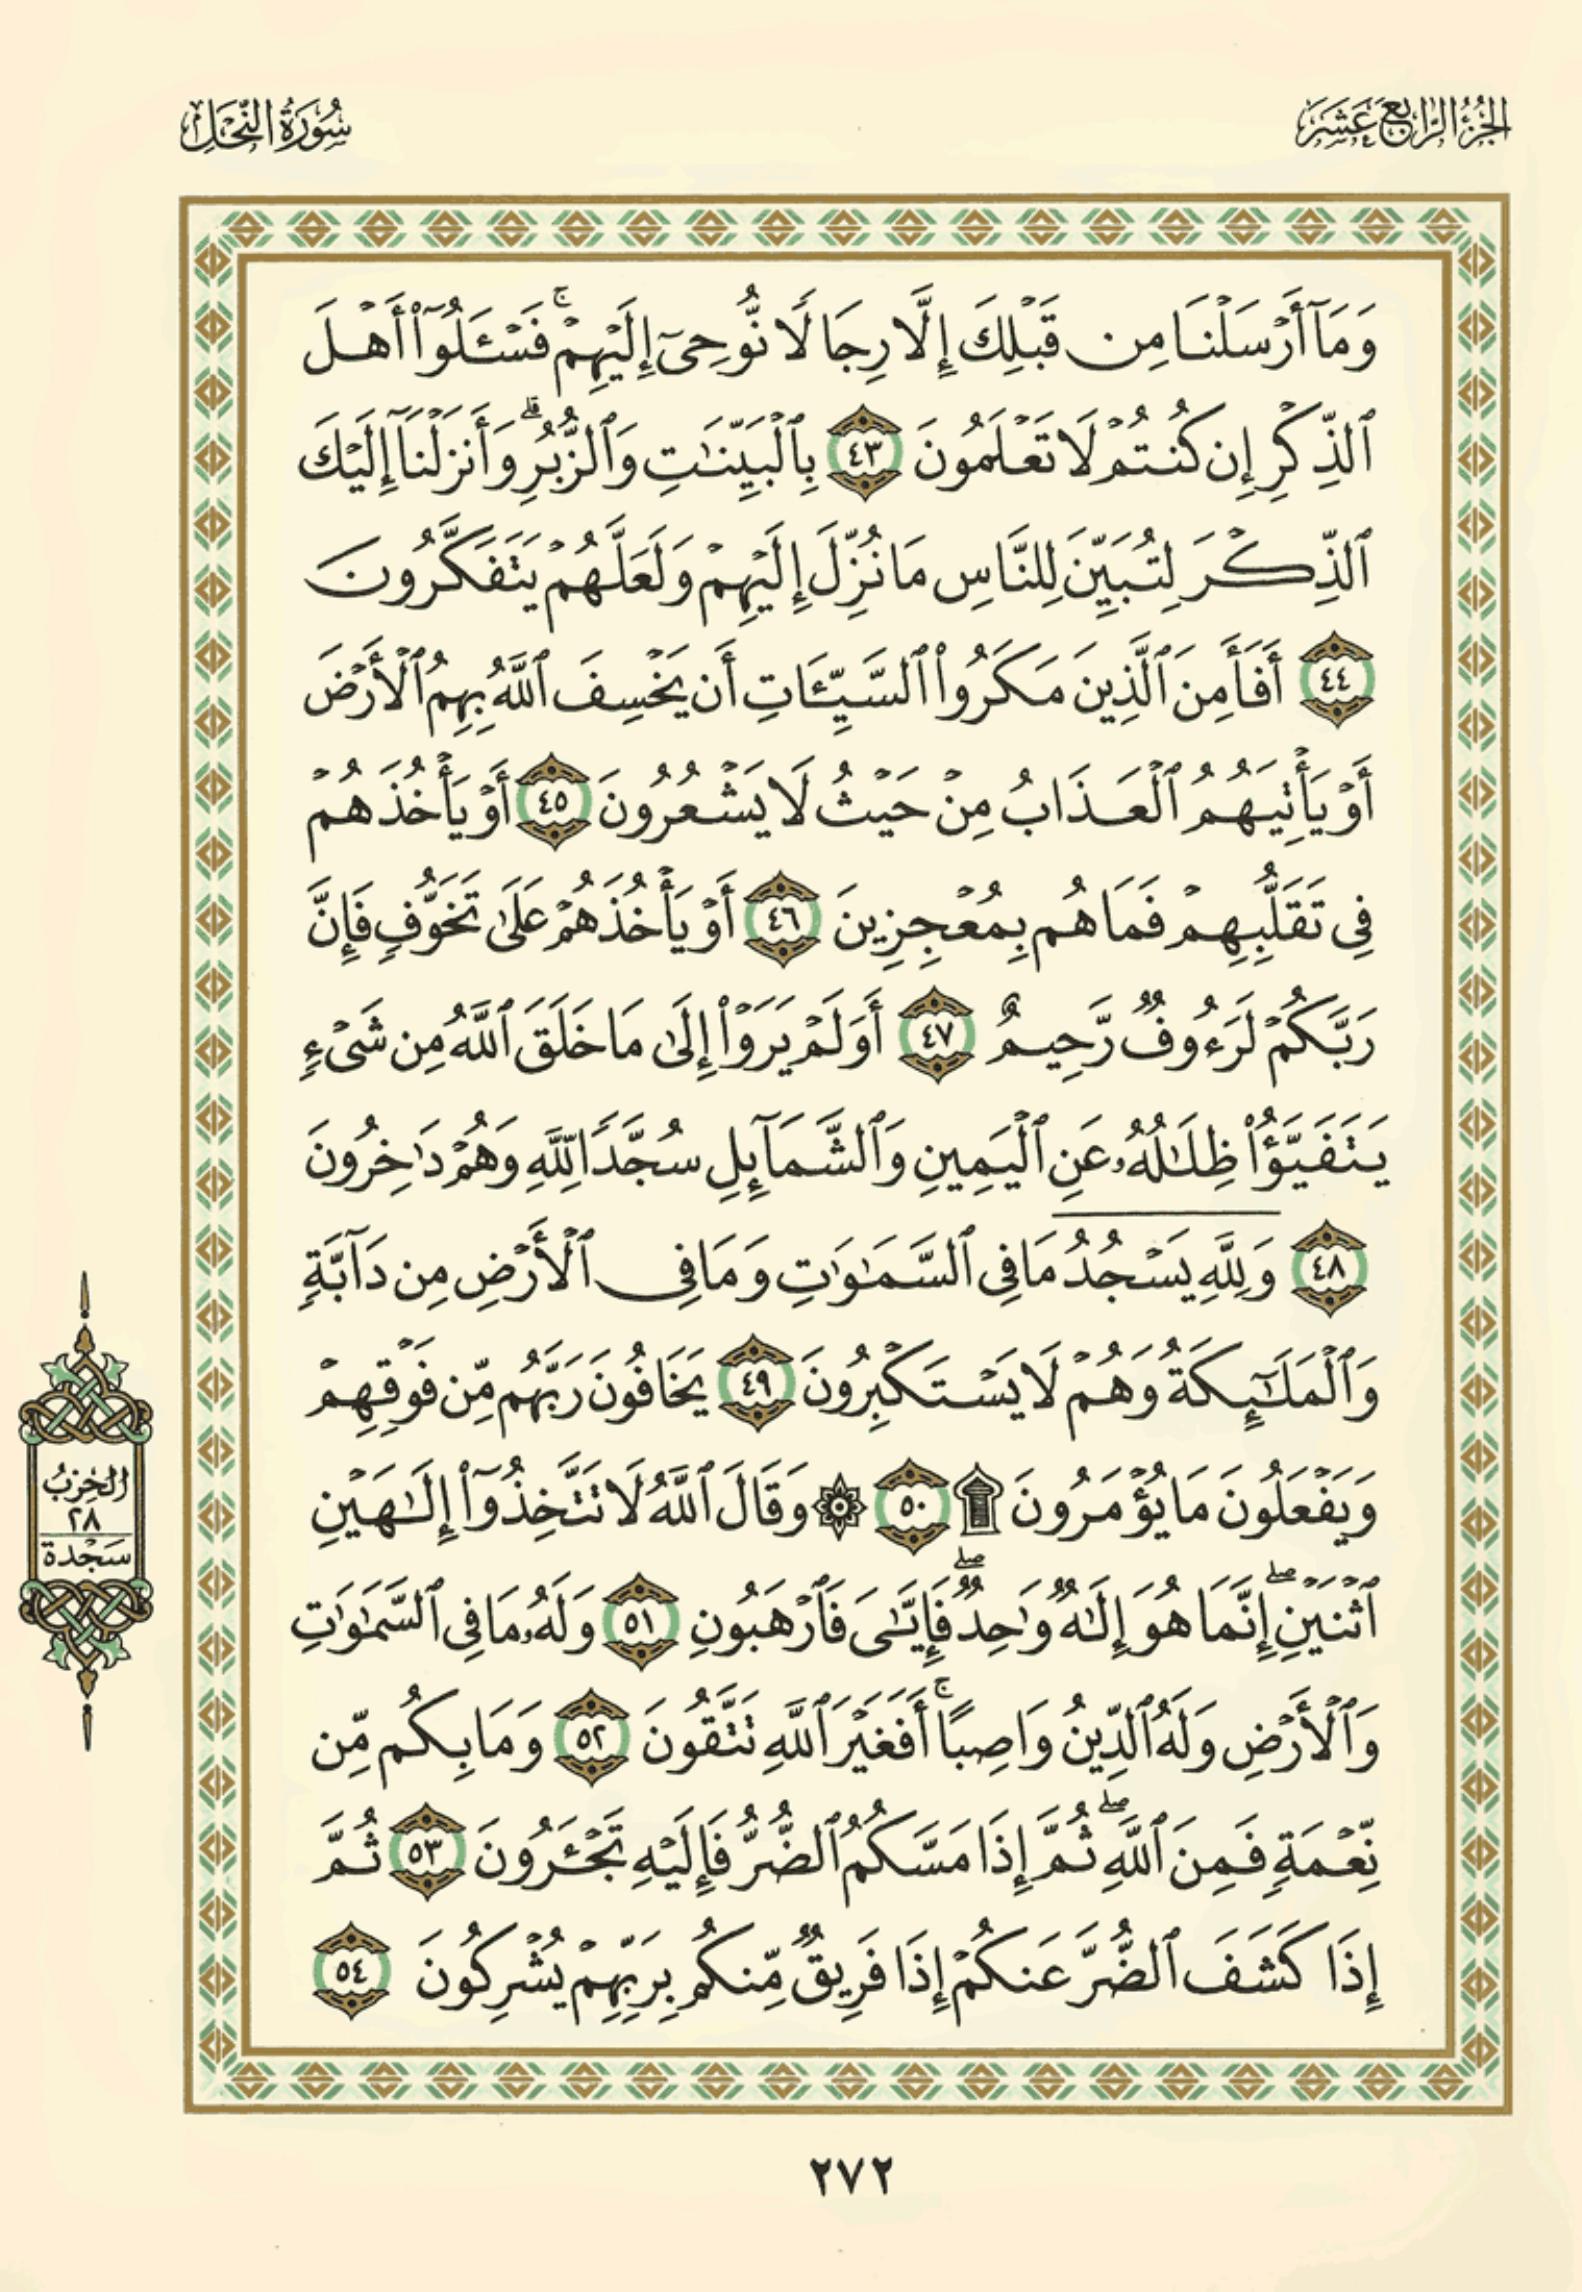 الجزء الرابع عشر
سورة النحل
وَمَآ أَرْسَلْنَا مِن قَبْلِكَ إِلَّا رِجَالًا نُّوحِىٓ إِلَيْهِمْ ۚ فَسْـَٔلُوٓا۟ أَهْلَ
ٱلذِّكْرِ إِن كُنتُمْ لَا تَعْلَمُونَ ٤٣ بِٱلْبَيِّنَـٰتِ وَٱلزُّبُرِ ۗ وَأَنزَلْنَآ إِلَيْكَ
ٱلذِّكْرَ لِتُبَيِّنَ لِلنَّاسِ مَا نُزِّلَ إِلَيْهِمْ وَلَعَلَّهُمْ يَتَفَكَّرُونَ
٤٤ أَفَأَمِنَ ٱلَّذِينَ مَكَرُوا۟ ٱلسَّيِّـَٔاتِ أَن يَخْسِفَ ٱللَّهُ بِهِمُ ٱلْأَرْضَ
أَوْ يَأْتِيَهُمُ ٱلْعَذَابُ مِنْ حَيْثُ لَا يَشْعُرُونَ ٤٥ أَوْ يَأْخُذَهُمْ
فِى تَقَلُّبِهِمْ فَمَا هُم بِمُعْجِزِينَ ٤٦ أَوْ يَأْخُذَهُمْ عَلَىٰ تَخَوُّفٍ فَإِنَّ
رَبَّكُمْ لَرَءُوفٌ رَّحِيمٌ ٤٧ أَوَلَمْ يَرَوْا۟ إِلَىٰ مَا خَلَقَ ٱللَّهُ مِن شَىْءٍ
يَتَفَيَّؤُا۟ ظِلَـٰلُهُۥ عَنِ ٱلْيَمِينِ وَٱلشَّمَآئِلِ سُجَّدًا لِّلَّهِ وَهُمْ دَٰخِرُونَ
٤٨ وَلِلَّهِ يَسْجُدُ مَا فِى ٱلسَّمَـٰوَٰتِ وَمَا فِى ٱلْأَرْضِ مِن دَآبَّةٍ
وَٱلْمَلَـٰٓئِكَةُ وَهُمْ لَا يَسْتَكْبِرُونَ ٤٩ يَخَافُونَ رَبَّهُم مِّن فَوْقِهِمْ
وَيَفْعَلُونَ مَا يُؤْمَرُونَ ۩ ٥٠ ۞ وَقَالَ ٱللَّهُ لَا تَتَّخِذُوٓا۟ إِلَـٰهَيْنِ
ٱثْنَيْنِ ۖ إِنَّمَا هُوَ إِلَـٰهٌ وَٰحِدٌ ۖ فَإِيَّـٰىَ فَٱرْهَبُونِ ٥١ وَلَهُۥ مَا فِى ٱلسَّمَـٰوَٰتِ
وَٱلْأَرْضِ وَلَهُ ٱلدِّينُ وَاصِبًا ۚ أَفَغَيْرَ ٱللَّهِ تَتَّقُونَ ٥٢ وَمَا بِكُم مِّن
نِّعْمَةٍ فَمِنَ ٱللَّهِ ۖ ثُمَّ إِذَا مَسَّكُمُ ٱلضُّرُّ فَإِلَيْهِ تَجْـَٔرُونَ ٥٣ ثُمَّ
إِذَا كَشَفَ ٱلضُّرَّ عَنكُمْ إِذَا فَرِيقٌ مِّنكُم بِرَبِّهِمْ يُشْرِكُونَ ٥٤
الحِزبُ
٢٨
سَجْدة
٢٧٢